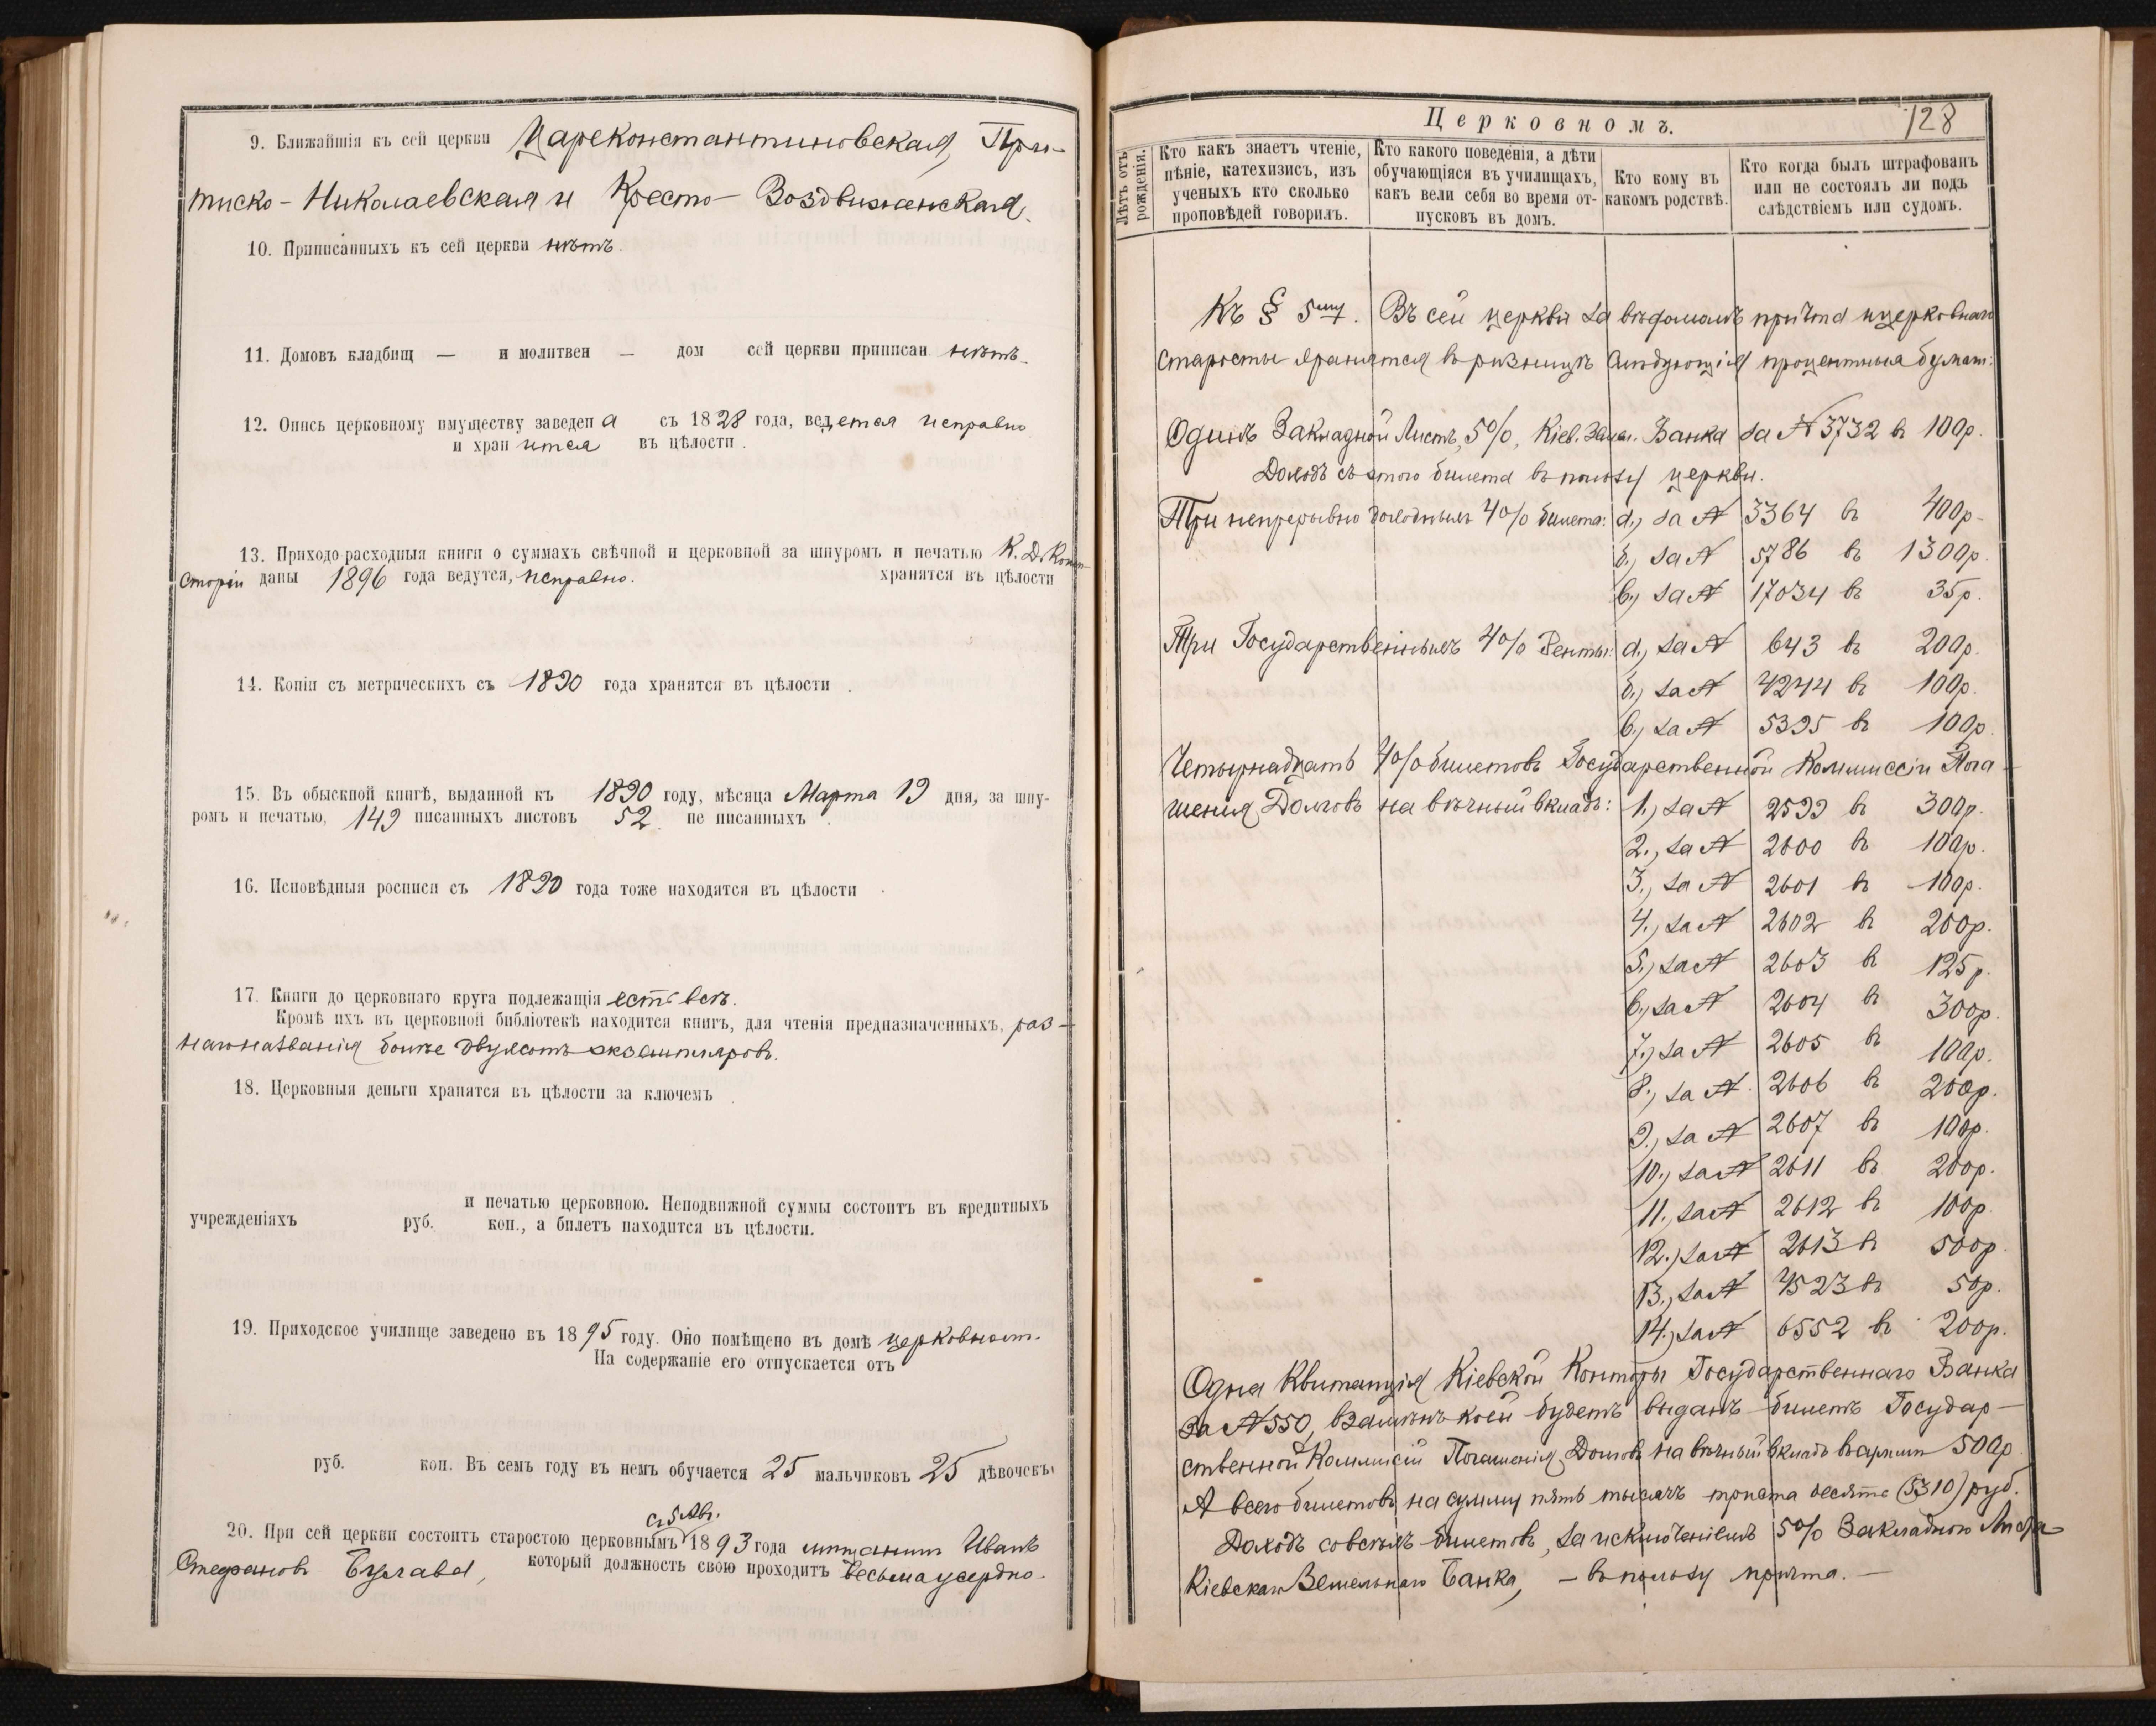 9. Ближайшія къ сей церкви Цареконстантиновская, При-
тиско-Николаевская и Кресто-Воздвиженская.
10. Приписанныхъ къ сей церкви нѣтъ.
11. Домовъ кладбищ — и молитвен — дом сей церкви приписан нѣтъ.
12. Опись церковному имуществу заведена съ 1828 года, ведется исправно
и хранится въ цѣлости.
13. Приходо-расходныя книги о суммахъ свѣчной и церковной за шнуромъ и печатью К. Д. Конси-
сторіи даны 1896 года ведутся, исправно. хранятся въ цѣлости
14. Копіи съ метрическихъ съ 1890 года хранятся въ цѣлости
15. Въ обыскной книгѣ, выданной къ 1890 году, мѣсяца Марта 19 дня, за шну-
ромъ и печатью, 149 писанныхъ листовъ 52. не писанныхъ
16. Исповѣдныя росписи съ 1890 года тоже находятся въ цѣлости
17. Книги до церковнаго круга подлежащія есть всѣ.
Кромѣ ихъ въ церковной библіотекѣ находится книгъ, для чтенія предназначенныхъ, раз-
наго названія болѣе двухсотъ экземпляровъ.
18. Церковныя деньги хранятся въ цѣлости за ключемъ
и печатью церковною. Неподвижной суммы состоитъ въ кредитныхъ
учрежденіяхъ руб. коп., а билетъ находится въ цѣлости.
19. Приходское училище заведено въ 1895 году. Оно помѣщено въ домѣ церковном.
На содержаніе его отпускается отъ
руб. коп. Въ семъ году въ немъ обучается 25 мальчиковъ 25 дѣвочекъ
с 5 Авг.
20. При сей церкви состоитъ старостою церковнымъ 1893 года мѣщанин Иванъ
Стефановъ Булава, который должность свою проходитъ весьма усердно.
Церковномъ.
128
Лѣтъ отъ рожденія.
Кто какъ знаетъ чтеніе, пѣніе, катехизисъ, изъ ученыхъ кто сколько проповѣдей говорилъ.
Кто какого поведенія, а дѣти обучающіяся въ училищахъ, какъ вели себя во время отпусковъ въ домъ.
Кто кому въ какомъ родствѣ.
Кто когда былъ штрафованъ или не состоялъ ли подъ слѣдствіемъ или судомъ.
Къ § 5му. Въ сей церкви за вѣдомомъ причта и церковнаго
старосты хранятся в ризницѣ слѣдующія процентныя бумаги:
Одинъ Закладной Листъ, 5%, Кіев. Земел. Банка за № 3732 в 100р.
Доходъ съ этого билета въ пользу церкви.
Три непрерывно доходныхъ 4% билета: а., за № 3364 в 400р.
б., за № 5786 в 1300р.
в., за № 17034 в 35р.
Три Государственныхъ 4% Ренты: а., за № 643 в 200р.
б., за № 4244 в 100р.
в., за № 5395 в 100р.
Четырнадцать 4% билетовъ Государственной Коммиссіи Пога-
шенія Долговъ на вѣчный вкладъ: 1., за № 2599 в 300р.
2., за № 2600 в 100р.
3., за № 2601 в 100р.
4., за № 2602 в 200р.
5., за № 2603 в 125р.
6., за № 2604 в 300р.
7., за № 2605 в 100р.
8., за № 2606 в 200р.
9., за № 2607 в 100р.
10., за № 2611 в 200р.
11., за № 2612 в 100р.
12., за № 2613 в 500р.
13., за № 4523 в 50р.
14., за № 6552 в 200р.
Одна Квитанція Кіевской Конторы Государственнаго Банка
за № 550, взамѣнъ коей будетъ выданъ билетъ Государ-
ственной Коммиссіи Погашенія Долговъ на вѣчный вкладъ въ 500р.
А всего билетовъ на сумму пять тысячъ триста десять (5310) руб.
Доходъ со всѣхъ билетовъ, за исключеніемъ 5% Закладного Листа
Кіевскаго Земельнаго Банка, — въ пользу причта. —